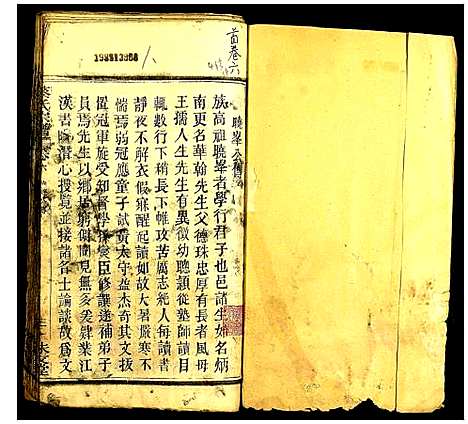 首卷六
195213968
曉峯公傳
族高祖曉峯者學行君子也邑諸生始名炳
南更名華翰先生父德珠忠厚有長者風母
王孺人生先生有異徵幼聰穎從塾師讀日
輒數行下稍長下帷攻苦厲志絕人每讀書
靜夜不解衣假寐醒起讀如故大暑嚴寒不
惴焉弱冠應童子試黃太守益杰奇其文拔
冠軍旋受知督學孫燮臣修譔遂補弟子
員焉先生以鄉居窮僻聞見無多爰肄業江
漢書院潛心搜覓並接諸名士論談故爲文